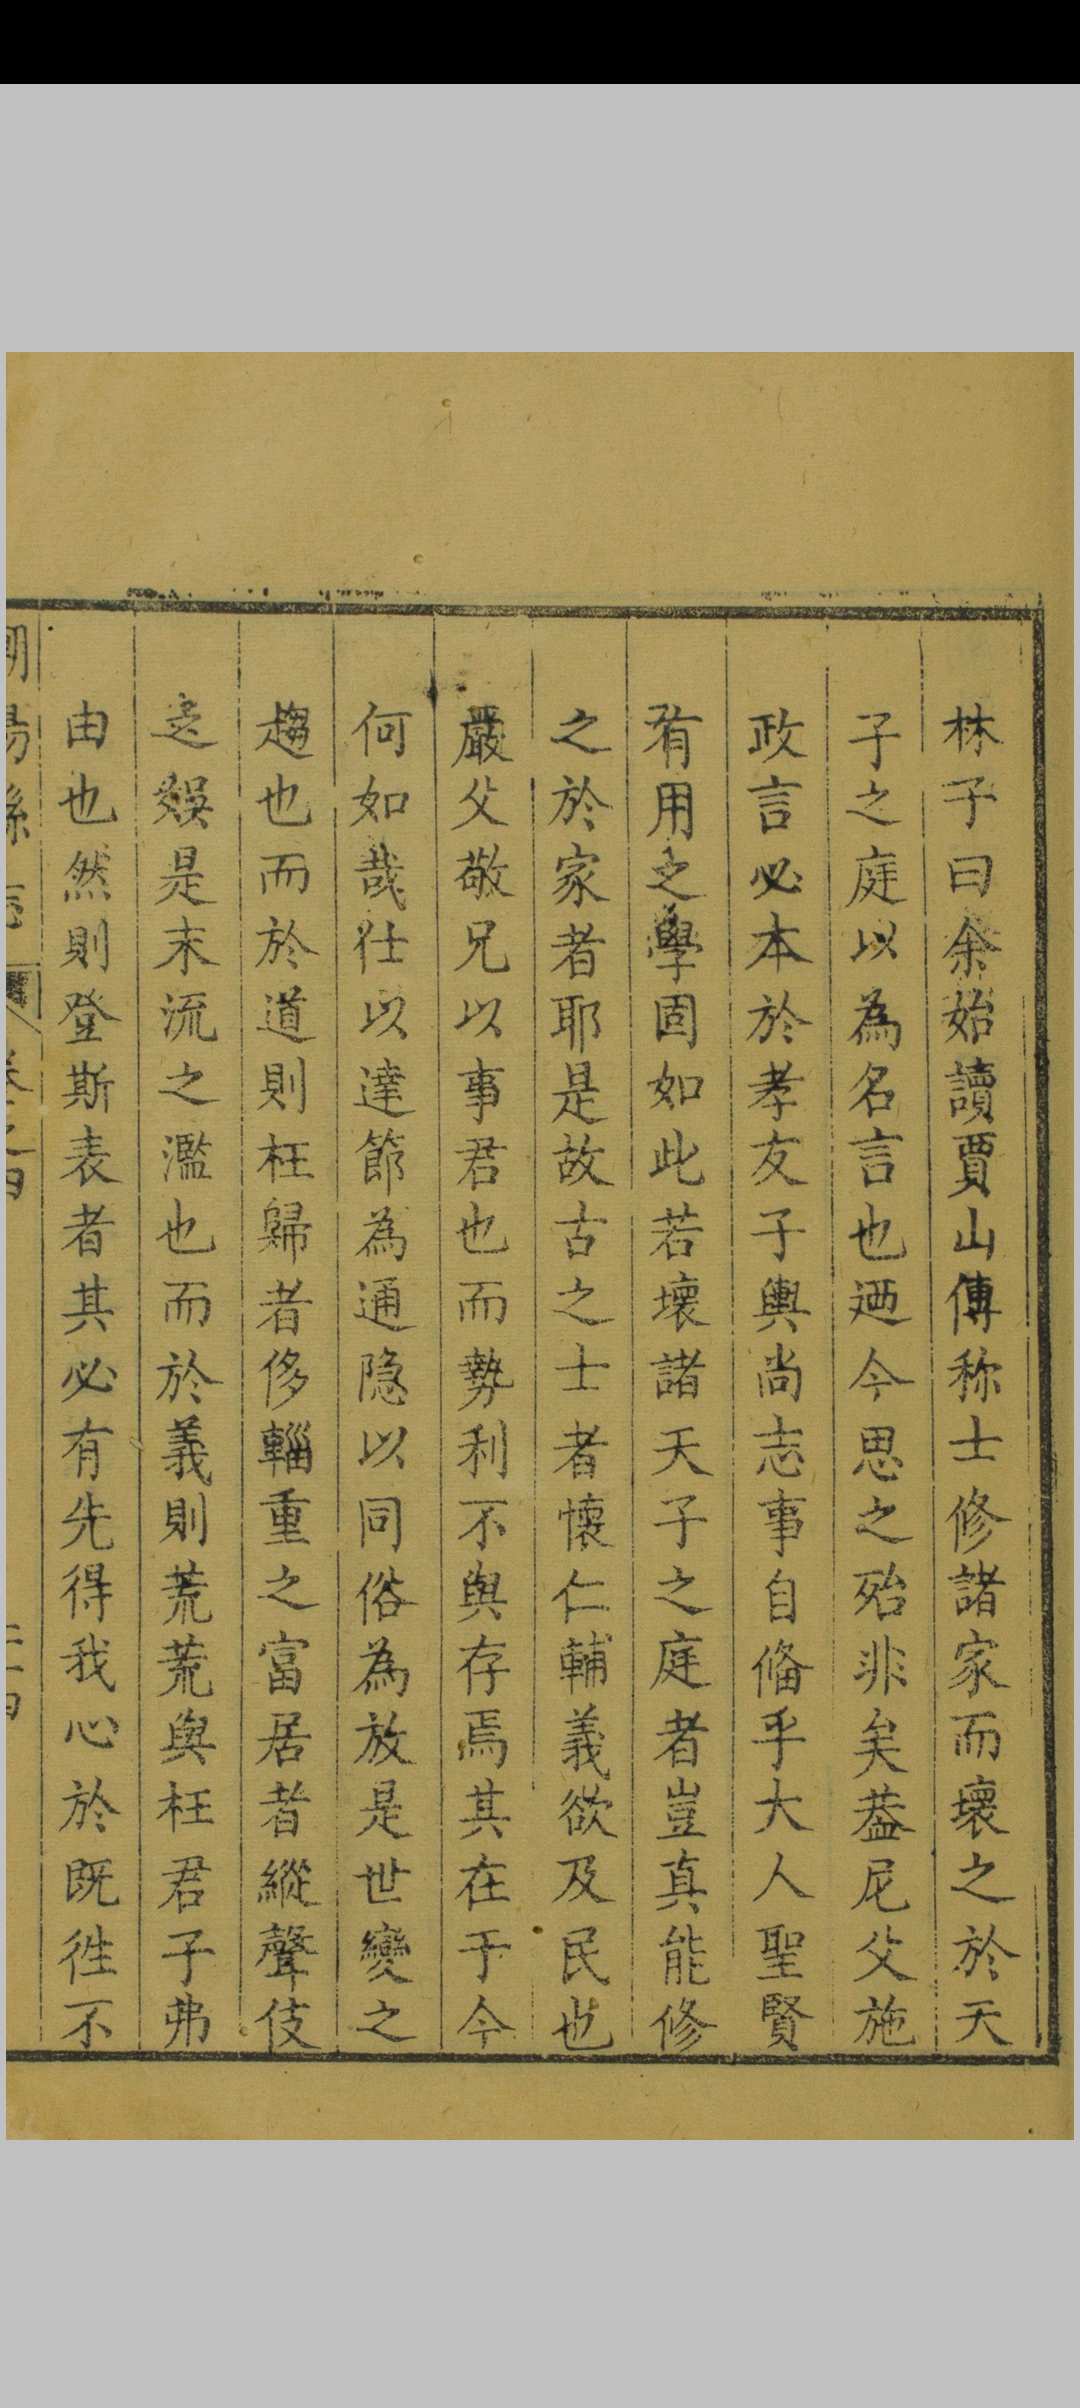 林子曰余始讀賈山傳称士修諸家而壞之於天
子之庭以為名言也迺今思之殆非矣葢尼父施
政言必本於孝友子輿尚志事自俻乎大人聖賢
有用之學固如此若壞諸天子之庭者豈真能修
之於家者耶是故古之士者懷仁輔義欲及民也
嚴父敬兄以事君也而勢利不與存焉其在于今
何如哉仕以達節為通隐以同俗為放是世變之
趨也而於道則枉歸者侈輜重之富居者縱聲伎
娯是末流之濫也而於義則荒荒與枉君子弗
由也然則登斯表者其必有先得我心於既徃不
朝陽縣志 卷之四